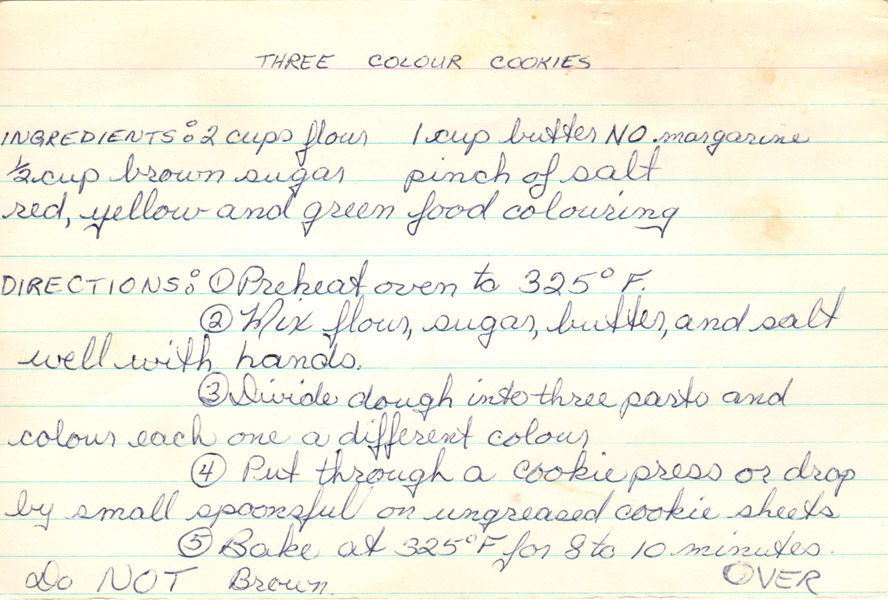 THREE COLOUR COOKIES
INGREDIENTS: 2 cups flour 1 cup butter NO margarine
1/2 cup brown sugar pinch of salt
red, yellow and green food colouring
DIRECTIONS: ① Preheat oven to 325° F.
② Mix flour, sugar, butter, and salt
well with hands.
③ Divide dough into three parts and
colour each one a different colour
④ Put through a cookie press or drop
by small spoonsful on ungreased cookie sheets
⑤ Bake at 325°F for 8 to 10 minutes.
Do NOT Brown. OVER